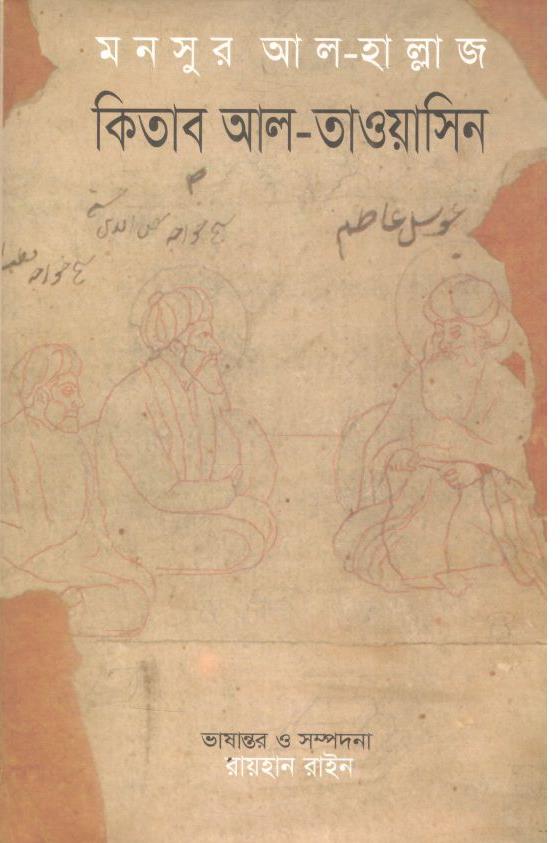 মনসুর আল-হাল্লাজ
কিতাব আল-তাওয়াসিন
ভাষান্তর ও সম্পদনা
রায়হান রাইন